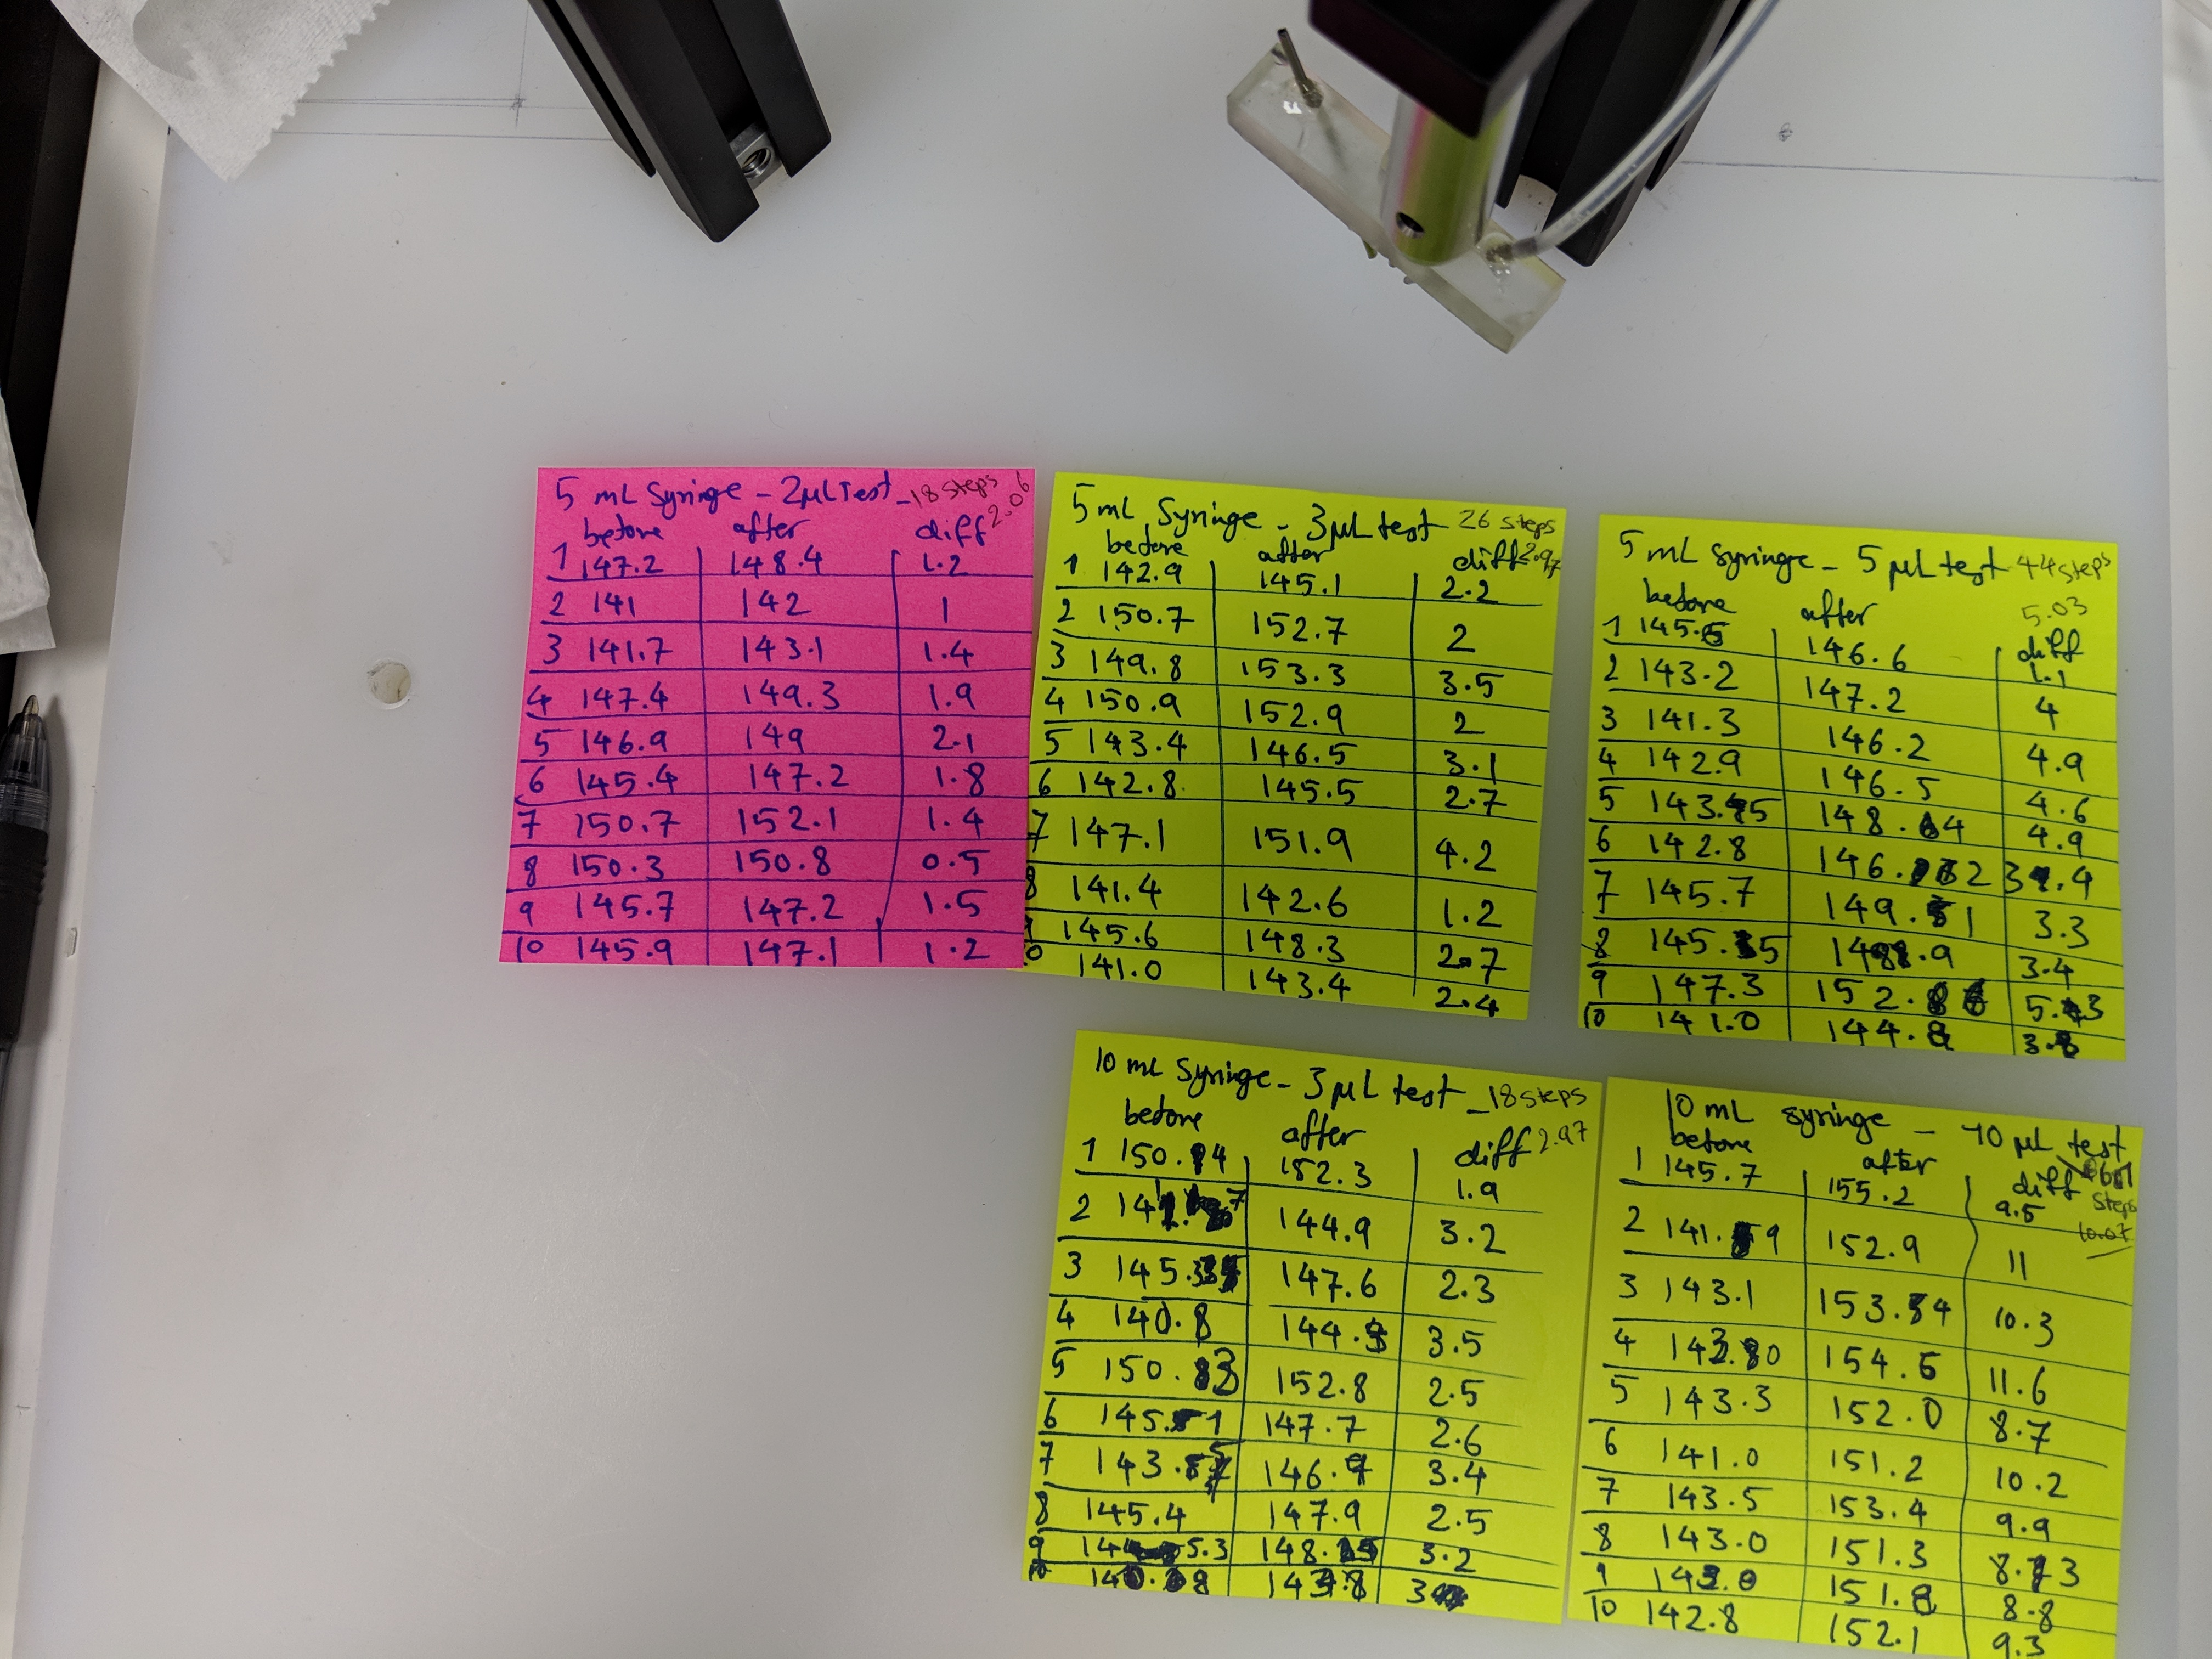 5 mL Syringe - 2µL Test - 18 steps
2.06
before after diff
1 147.2 148.4 1.2
2 141 142 1
3 141.7 143.1 1.4
4 147.4 149.3 1.9
5 146.9 149 2.1
6 145.4 147.2 1.8
7 150.7 152.1 1.4
8 150.3 150.8 0.5
9 145.7 147.2 1.5
10 145.9 147.1 1.2
5 mL Syringe - 3µL test 26 steps
before after diff 2.97
1 142.9 145.1 2.2
2 150.7 152.7 2
3 149.8 153.3 3.5
4 150.9 152.9 2
5 143.4 146.5 3.1
6 142.8 145.5 2.7
7 147.1 151.9 4.2
8 141.4 142.6 1.2
9 145.6 148.3 2.7
10 141.0 143.4 2.4
5 mL Syringe - 5 µL test 44 steps
5.03
before after diff
1 145.5 146.6 1.1
2 143.2 147.2 4
3 141.3 146.2 4.9
4 142.9 146.5 4.6
5 143.5 148.4 4.9
6 142.8 146.2 3.4
7 145.7 149.1 3.3
8 145.5 148.9 3.4
9 147.3 152.6 5.3
10 141.0 144.8 3.8
10 mL Syringe - 3µL test - 18 steps
before after diff 2.97
1 150.4 152.3 1.9
2 141.7 144.9 3.2
3 147.6 2.3
4 140.8 144.3 3.5
5 150.3 152.8 2.5
6 145.1 147.7 2.6
7 143.5 146.9 3.4
8 145.4 147.9 2.5
9 145.3 148.5 3.2
10 140.8 143.8 3
10 mL syringe - 10 µL test
before after diff steps
10.07
1 145.7 155.2 9.5
2 141.9 152.9 11
3 143.1 153.4 10.3
4 143.0 154.6 11.6
5 143.3 152.0 8.7
6 141.0 151.2 10.2
7 143.5 153.4 9.9
8 143.0 151.3 8.3
9 143.0 151.8 8.8
10 142.8 152.1 9.3